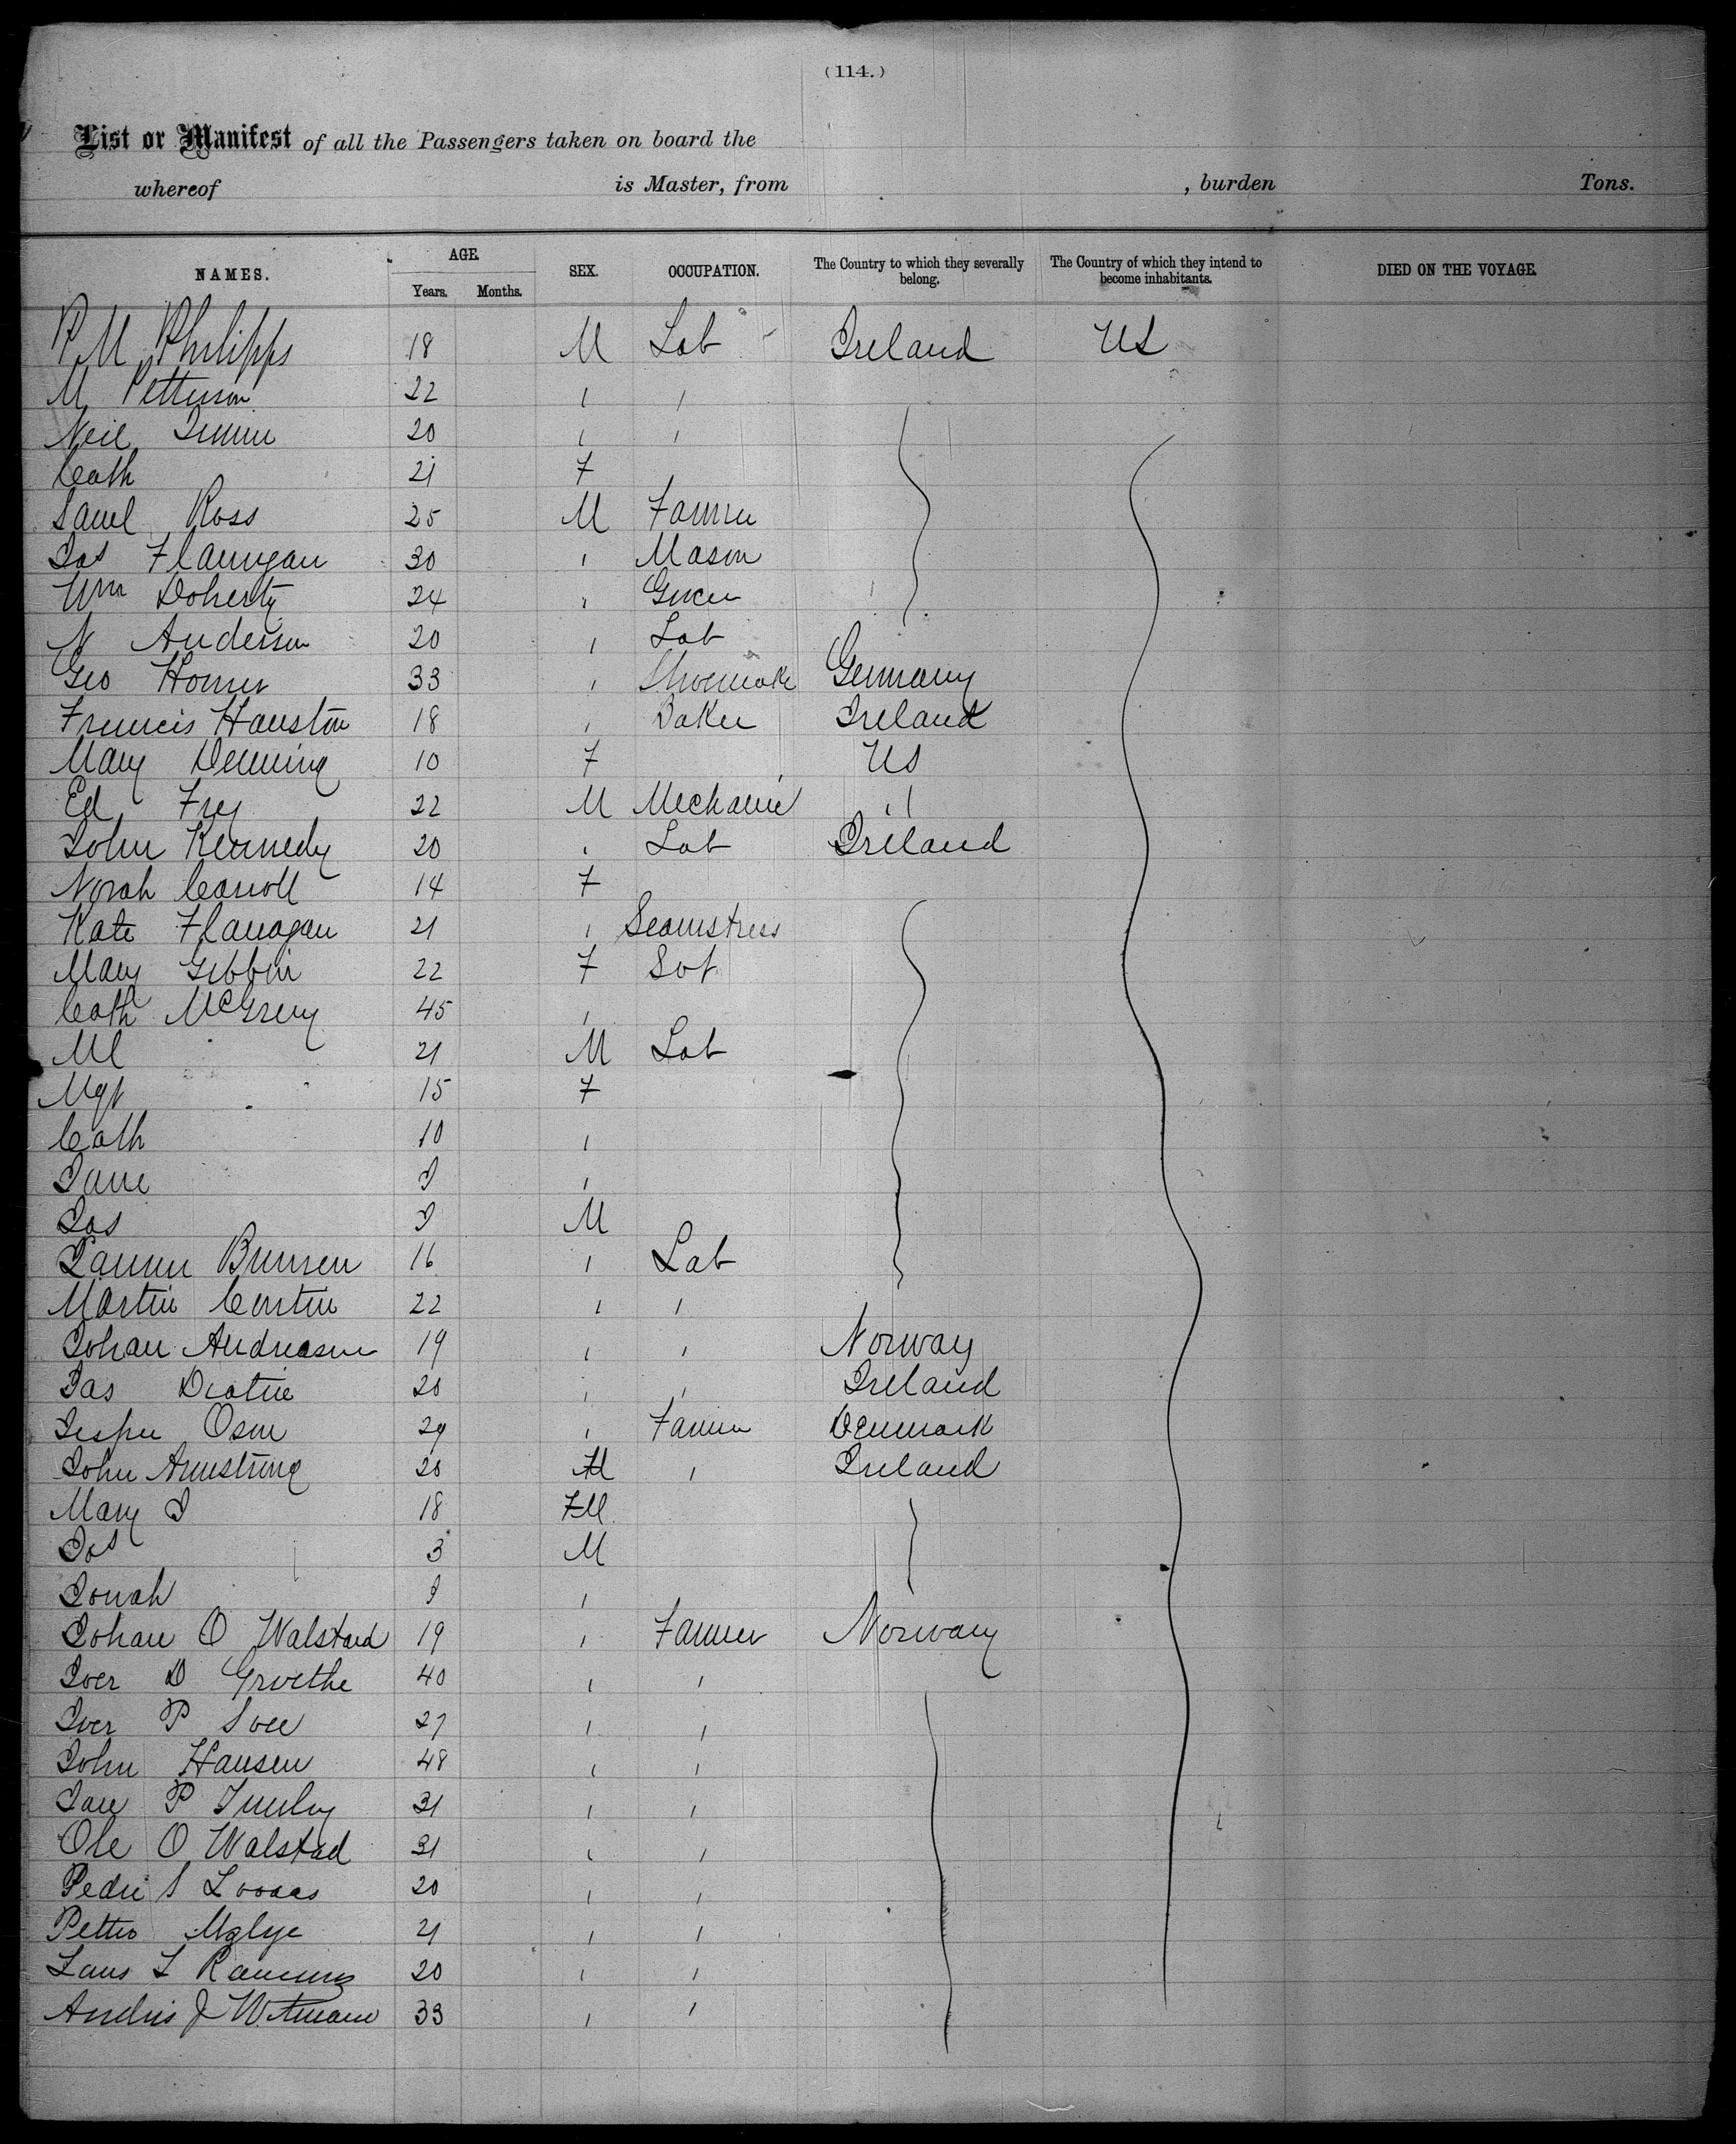 (114.)
List or Manifest of all the Passengers taken on board the
whereof is Master, from , burden Tons.
NAMES. AGE. Years. Months. SEX. OCCUPATION. The Country to which they severally belong. The Country of which they intend to become inhabitants. DIED ON THE VOYAGE.
P M Philipps 18 M Lab Ireland US
M Petterson 22 " "
Neil 20 " "
Cath 21 F
Saml Ross 25 M Farmer
Jas Flannigan 30 " Mason
Wm Doherty 24 " Grocer
N Anderson 20 " Lab
Geo Horner 33 " Shoemake Germany
Francis Hauston 18 " Baker Ireland
Mary Denning 10 F US
Ed Frey 22 M Mechanic "
John Kennedy 20 " Lab Ireland
Norah Carroll 14 F
Kate Flanagan 21 " Seamstress
Mary Gibbin 22 F
Cath 45 "
Ml 21 M Lab
Mgt 15 F
Cath 10 "
Jane 9 "
Jas 9 M
16 " Lab
Martin 22 " "
Johan Andreasen 19 " " Norway
Jas 20 " " Ireland
Jesper 29 " Farmer Denmark
John Armstrong 20 M " Ireland
Mary J 18 F
Jos 3 M
9 "
Johan O Walstad 19 " Farmer Norway
Iver D Groethe 40 " "
Iver P 27 " "
John Hansen 48 " "
P 31 " "
Ole O Walstad 31 " "
S 20 " "
21 " "
L 20 " "
J 33 " "